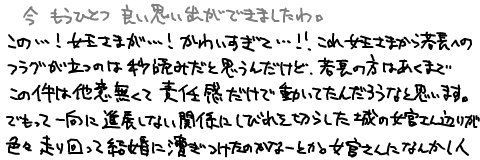 今 もうひとつ 良い思い出ができましたわ。
この…！女王さまが…！かわいすぎて…!! これ女王さまから若長への
フラグが立つのは秒読みだと思うんだけど、若長の方はあくまで
この件は他意無くて責任感だけで動いてたんだろうなと思います。
でもって一向に進展しない関係にしびれを切らした城の女官さん辺りが
色々走り回って結婚に漕ぎつけたのかなーとか。女官さんになんか1人